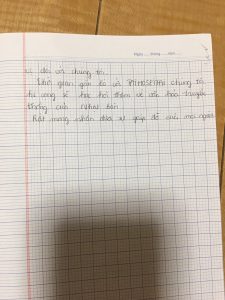 Ngày ...... tháng ...... năm ......
và đối với chúng tôi.
Thời gian gần tới cả chúng tôi
hi vọng sẽ học hỏi thêm về văn hoá truyền
thống của Nhật Bản.
Rất mong nhận được sự giúp đỡ của mọi người